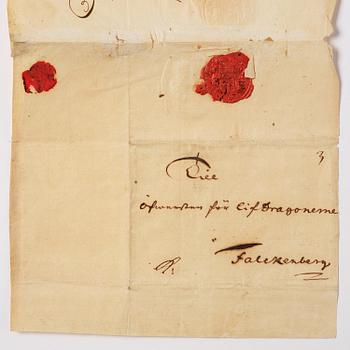 3
Till
öfwersten för Lif Dragonerne
Falckenberg